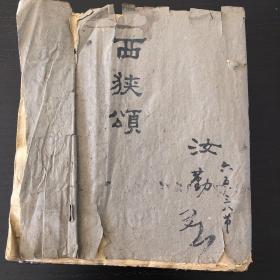 西狭頌
汝勤
六五、三、八节